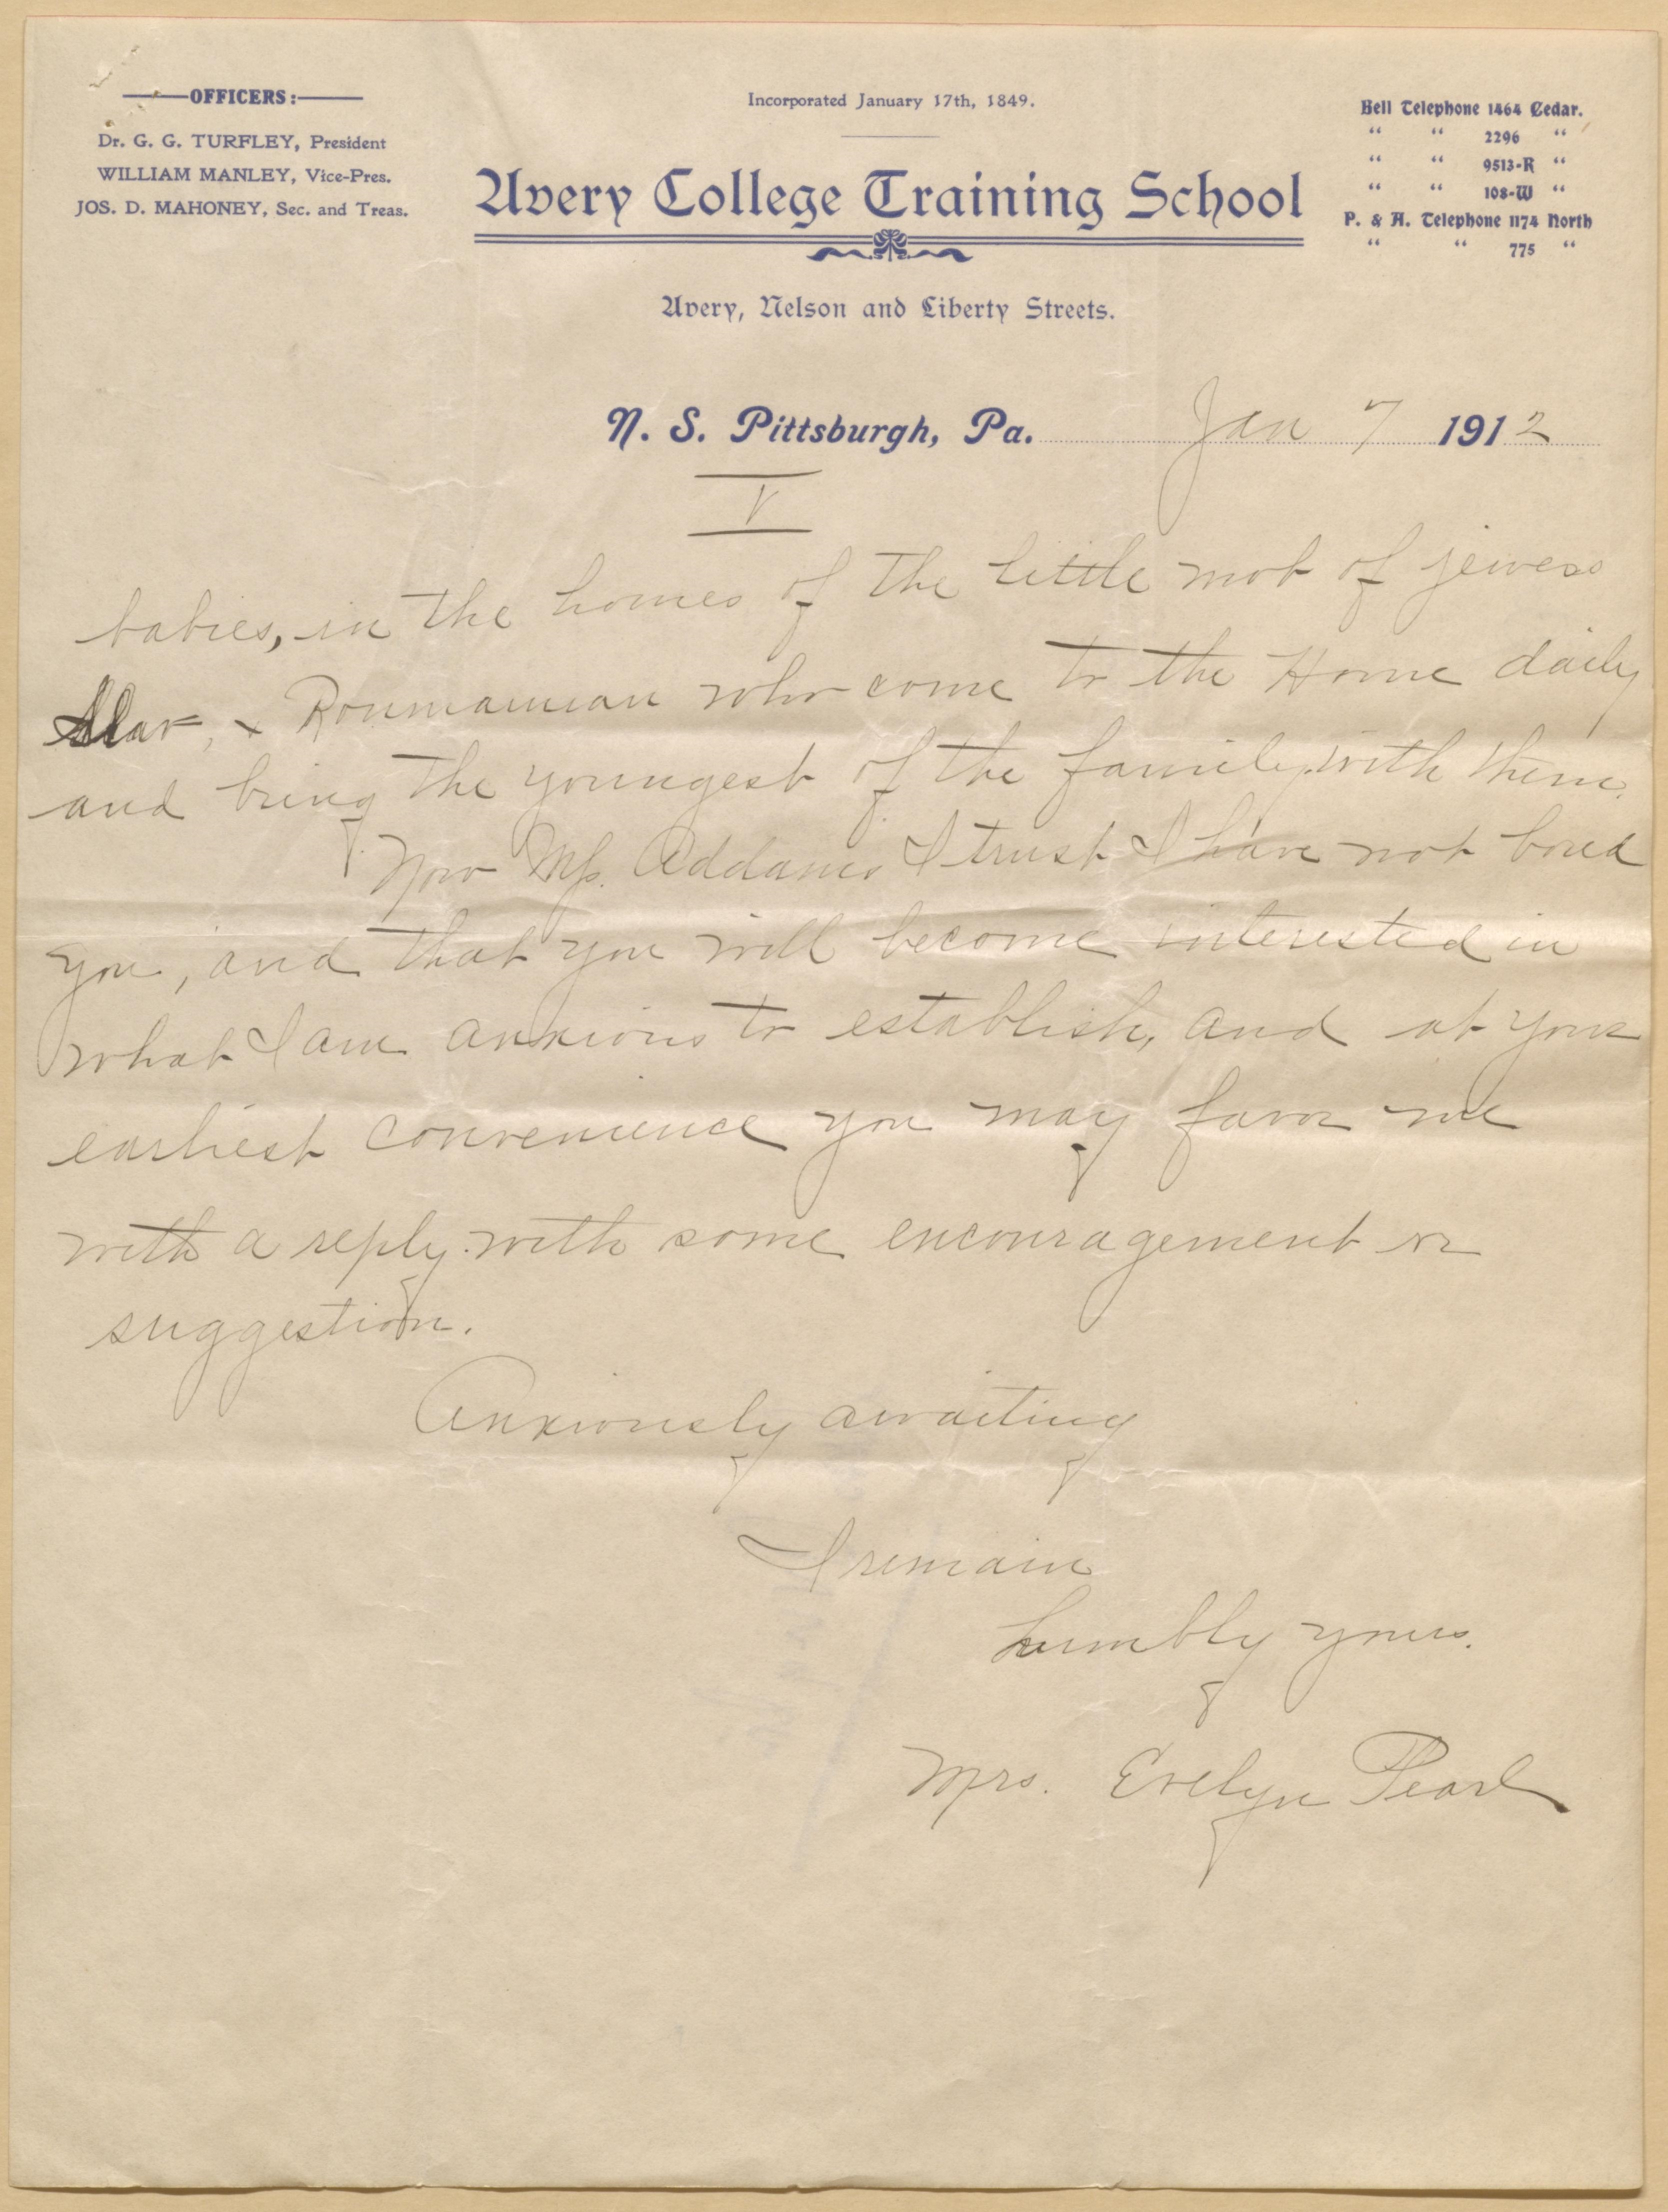 OFFICERS:
Dr. G. G. TURFLEY, President
WILLIAM MANLEY, Vice-Pres.
JOS. D. MAHONEY, Sec. and Treas.
Incorporated January 17th, 1849.
Avery College Training School
Avery, Nelson and Liberty Streets.
Bell Telephone 1464 Cedar.
" " 2296 "
" " 9513-R "
" " 108-W "
P. & A. Telephone 1174 North
" " 775 "
N. S. Pittsburgh, Pa. Jan 7 1912
V
babies, in the homes of the little mob of jewess
Slav, & Roumanian who come to the Home daily
and bring the youngest of the family with them.
Now Ms. Addams I trust I have not bored
you, and that you will become interested in
what I am anxious to establish, and at your
earliest convenience you may favor me
with a reply with some encouragement or
suggestion.
Anxiously awaiting
I remain
humbly yours.
Mrs. Evelyn Pearl